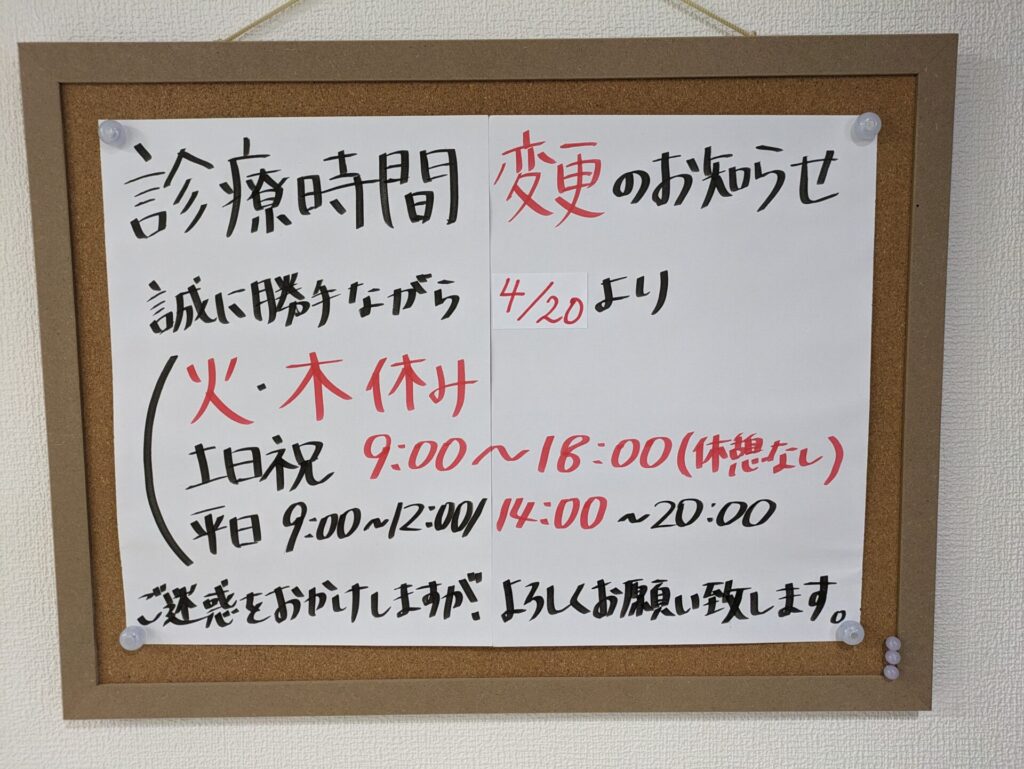 診療時間 変更のお知らせ
誠に勝手ながら 4/20より
火・木 休み
土日祝 9:00〜18:00(休憩なし)
平日 9:00〜12:00/14:00〜20:00
ご迷惑をおかけしますが、よろしくお願い致します。